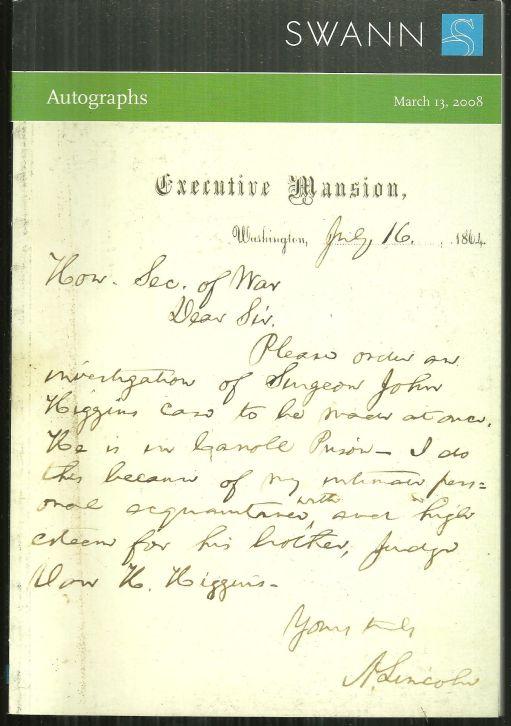 SWANN
Autographs
March 13, 2008
Executive Mansion,
Washington, July 16. 1864.
Hon. Sec. of War
Dear Sir.
Please order an
investigation of Surgeon John
Higgins case to be made at once.
He is in Carroll Prison — I do
this because of my intimate pers=
onal acquaintance, with and high
esteem for his brother, Judge
Van H. Higgins—
Yours truly
A. Lincoln